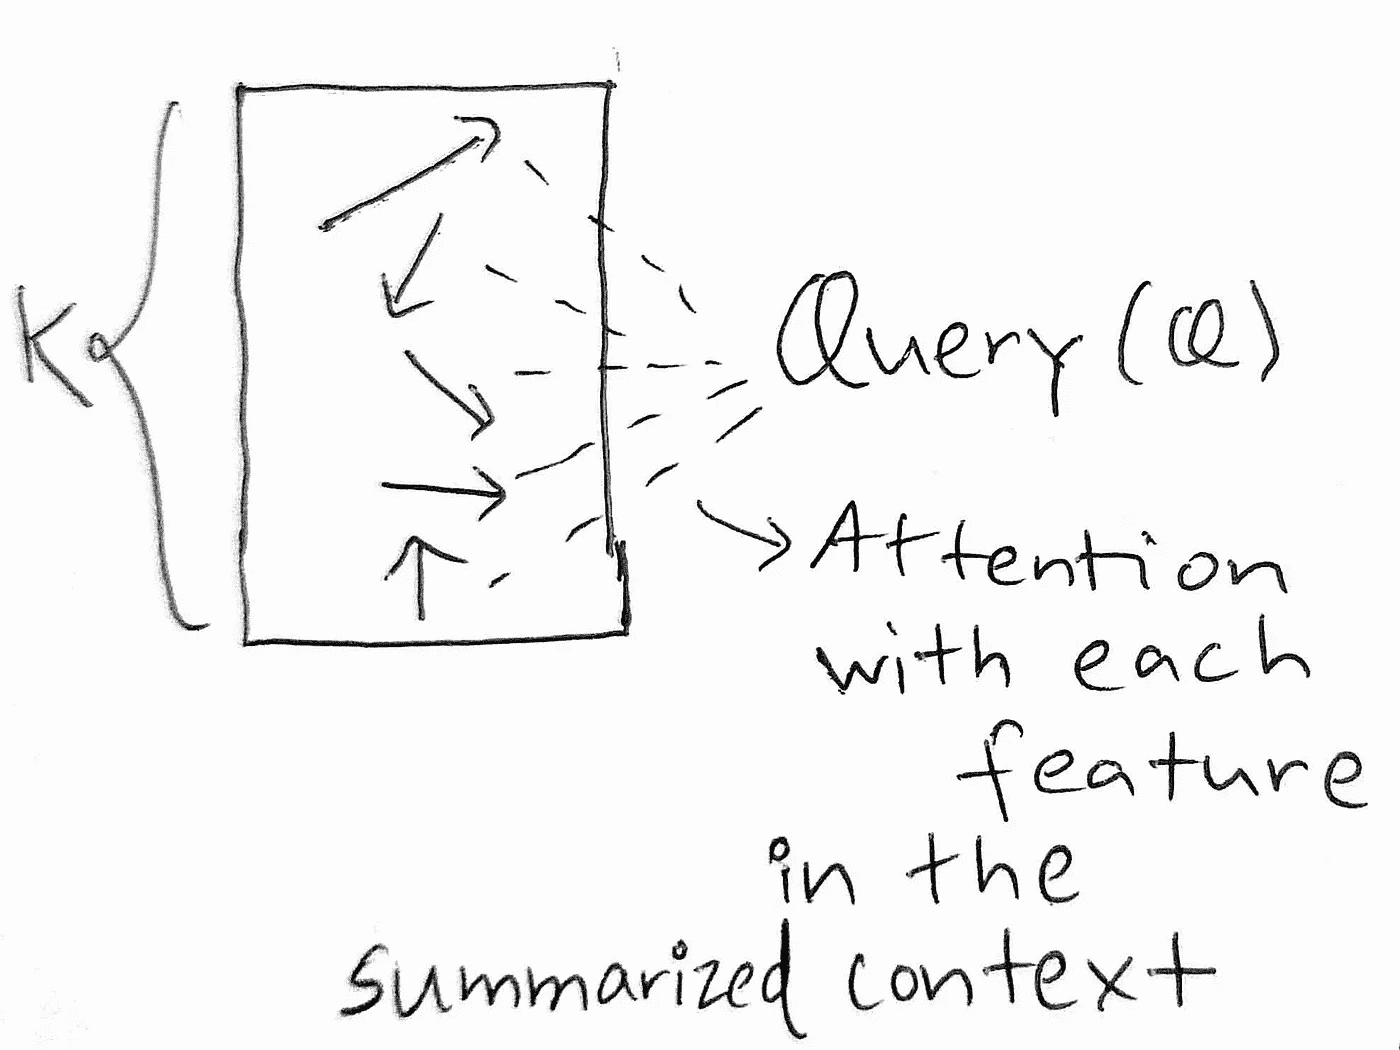 K
Query (Q)
Attention
with each
feature
in the
summarized context